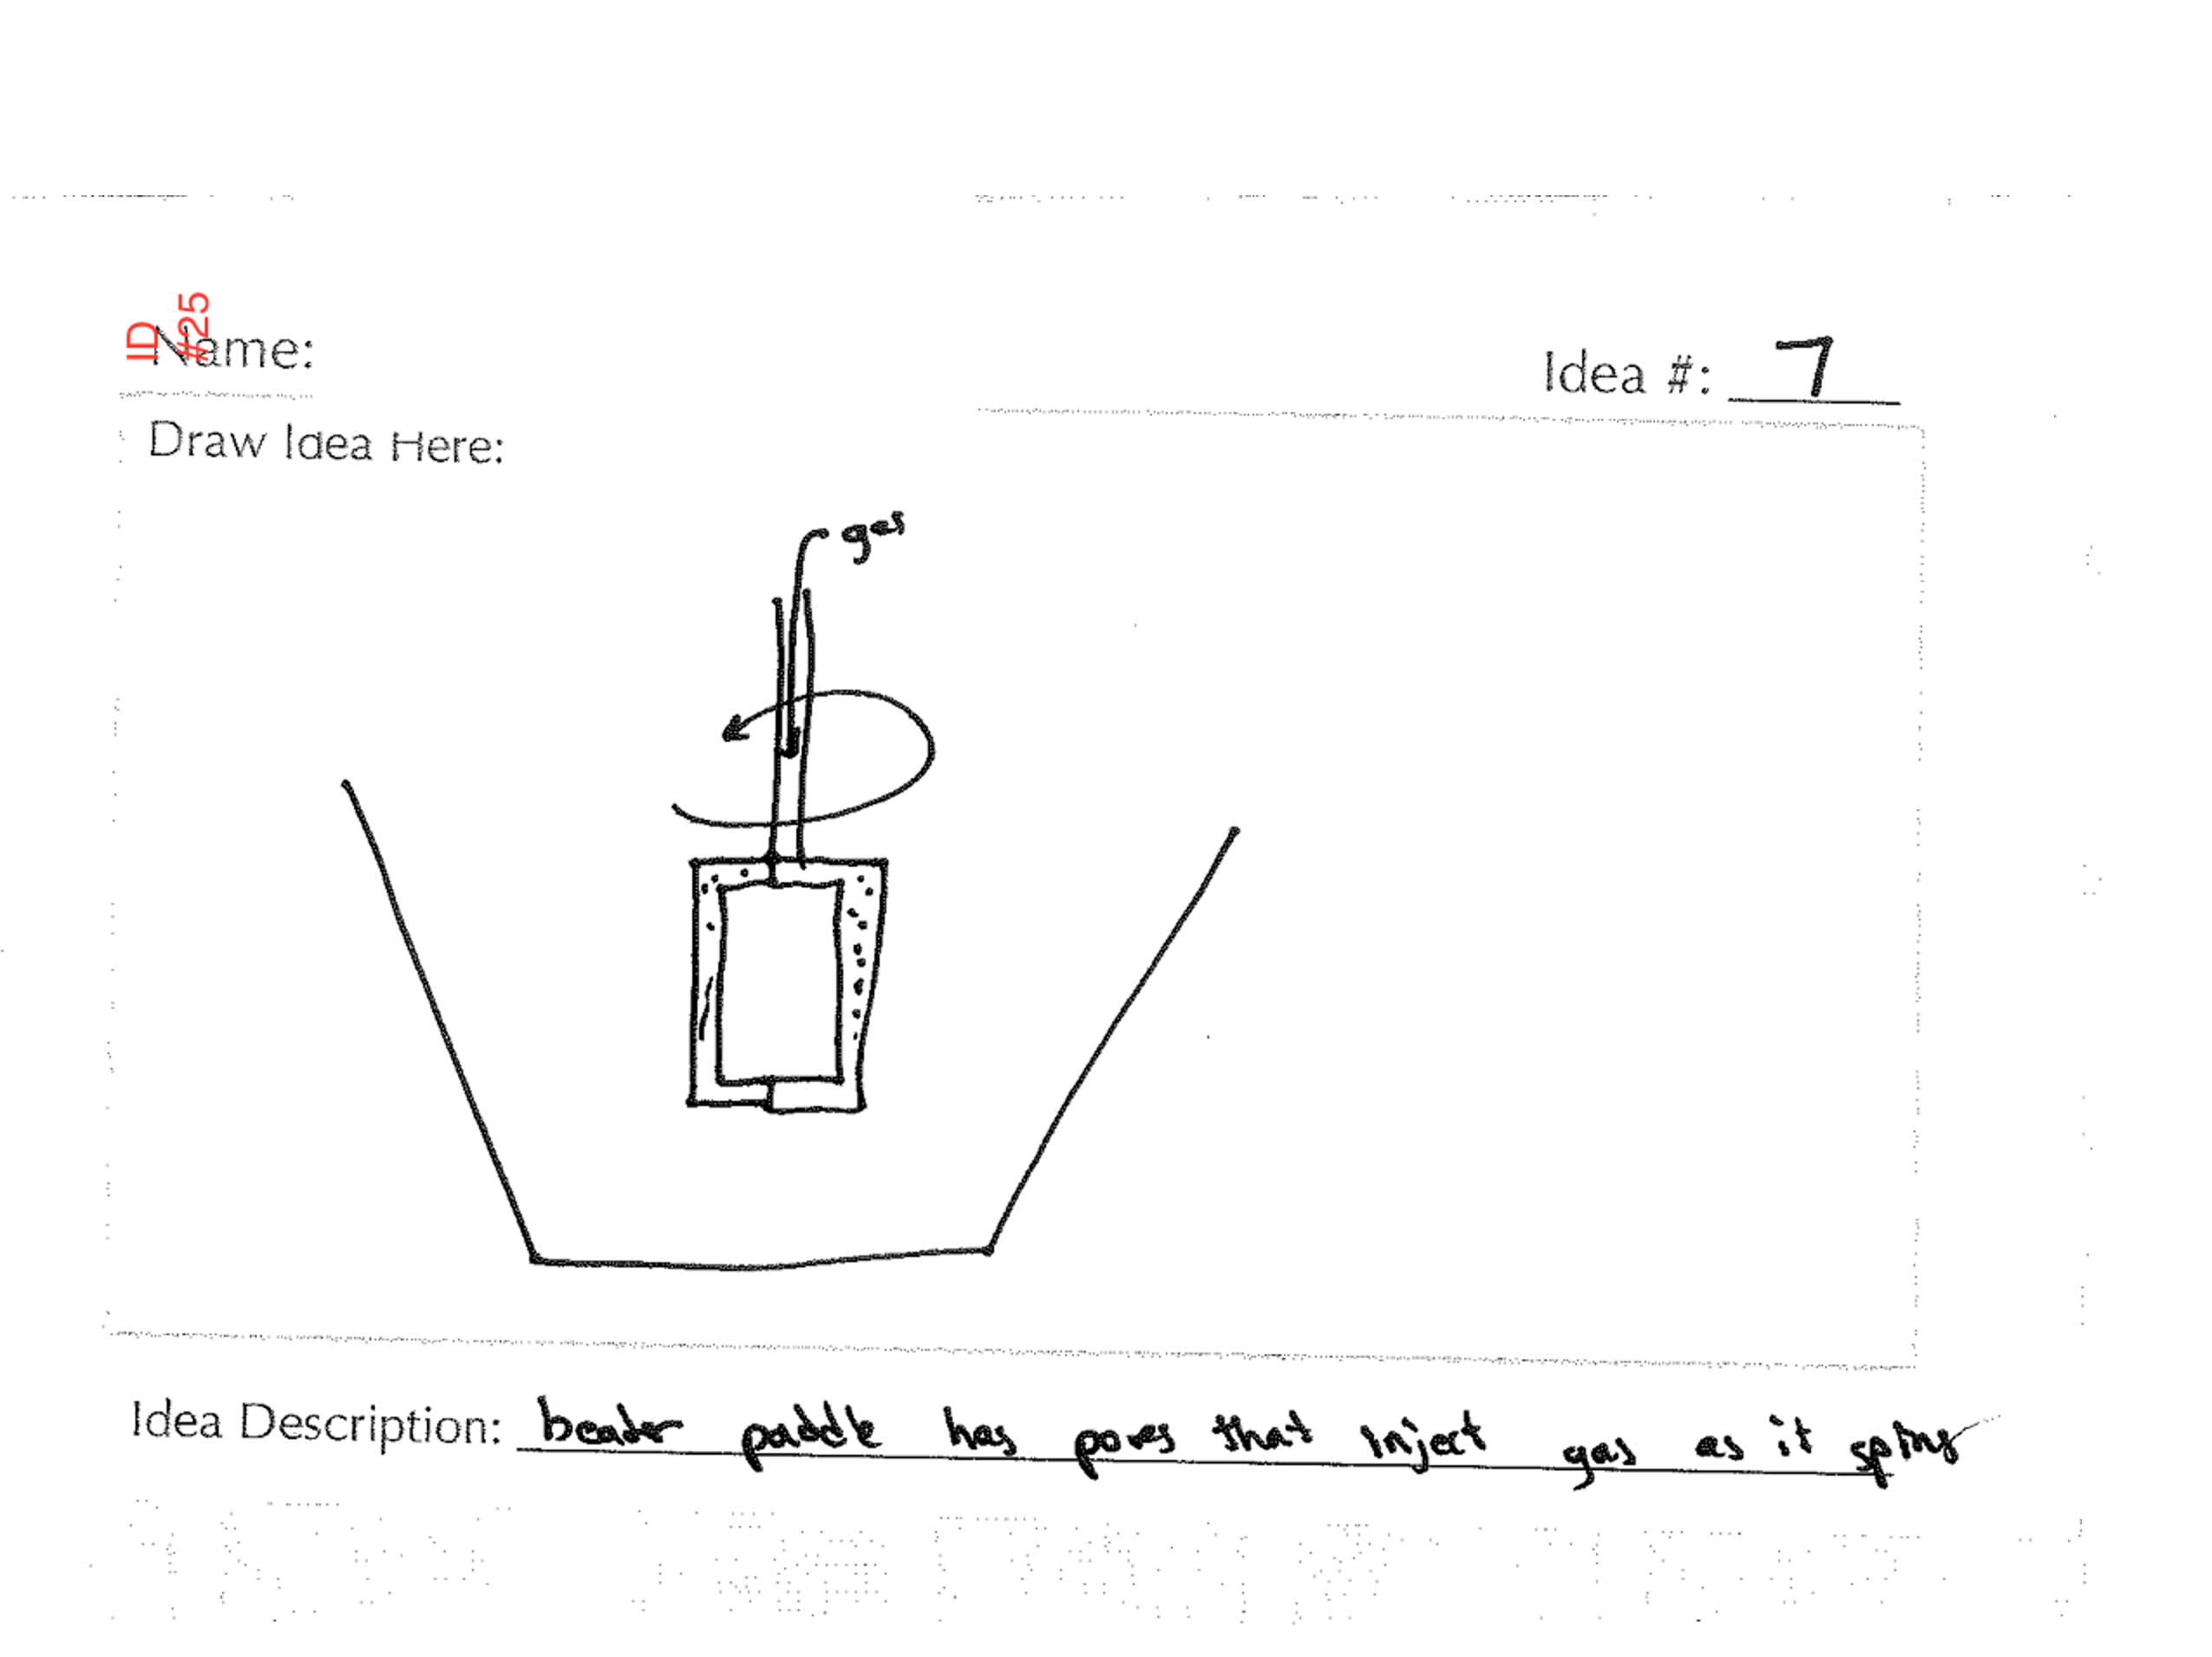 ID
#25
Name:
Idea #: 7
Draw Idea Here:
gas
Idea Description: beater paddle has pores that inject gas as it spins